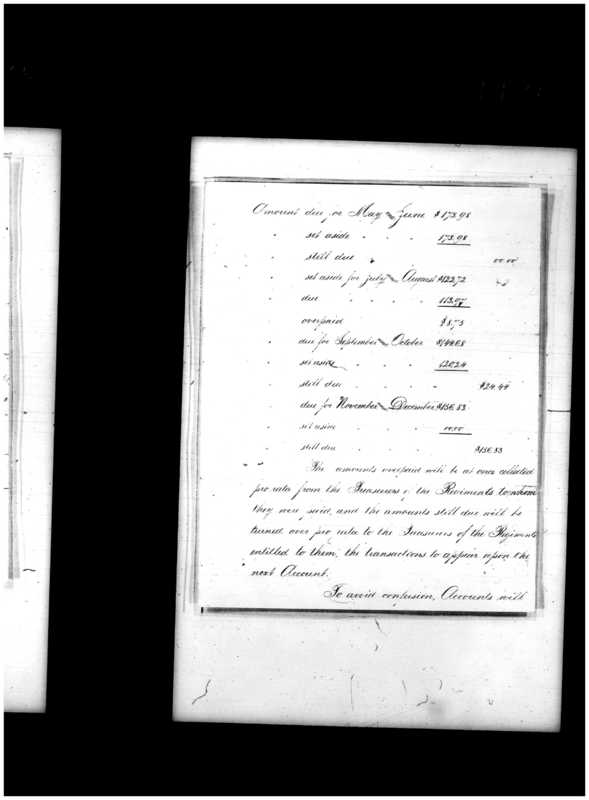 Amount due for May and June $173.98
" set aside " " 173.98
" still due " 00.00
" set aside for July and August $122.72
" due " " " " 113.97
" overpaid $8.75
" due for September and October $144.68
" set aside " " " 120.24
" still due " " " " $24.44
" due for November and December $156.53
" set aside " " " 00.00
" still due " " " $156.53
The amounts overpaid will be at once collected
pro rata from the Treasurers of the Regiments to whom
they were paid, and the amounts still due will be
turned over pro rata to the Treasurers of the Regiments
entitled to them, the transactions to appear upon the
next Account.
To avoid confusion, Accounts will